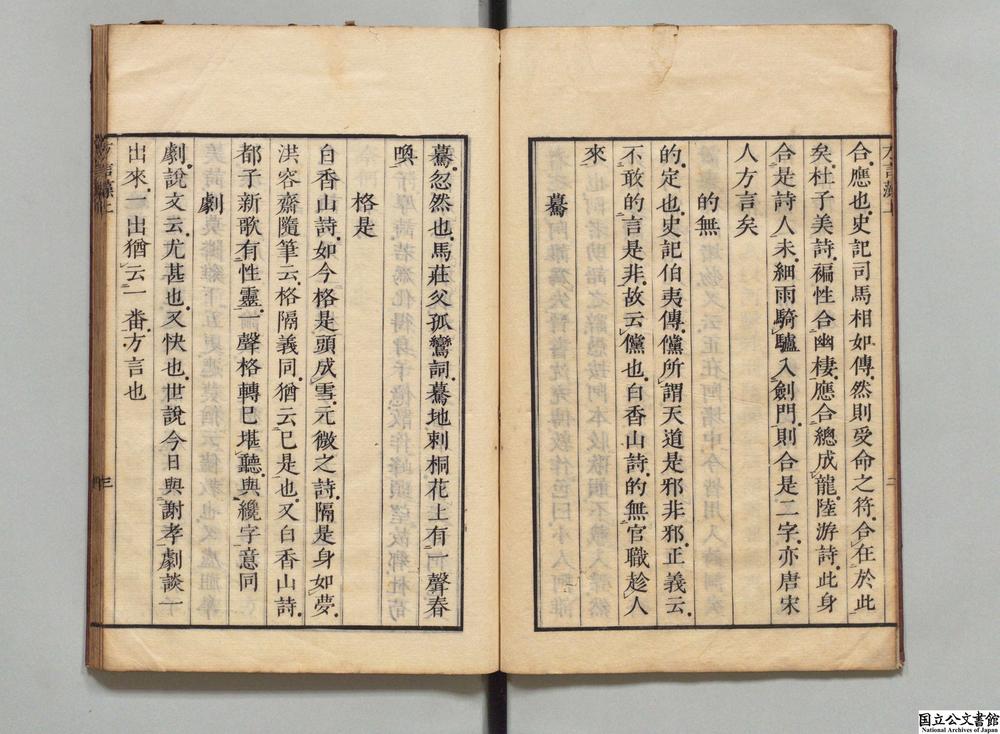 方言藻上
二
合應也史記司馬相如傳然則受命之符合在於此
矣杜子美詩褊性合幽棲應合總成龍陸游詩此身
合是詩人未細雨騎驢入劍門則合是二字亦唐宋
人方言矣
的無
的定也史記伯夷傳儻所謂天道是邪非邪正義云
不敢的言是非故云儻也白香山詩的無官職趁人
來
驀
驀忽然也馬莊父孤鸞詞驀地刺桐花上有一聲春
喚
格是
白香山詩如今格是頭成雪元微之詩隔是身如夢
洪容齋隨筆云格隔義同猶云已是也又白香山詩
都子新歌有性靈一聲格轉已堪聽與纔字意同
劇
劇說文云尤甚也又快也世說今日與謝孝劇談一
出來一出猶云一番方言也
方言藻上
三
国立公文書館
National Archives of Japan